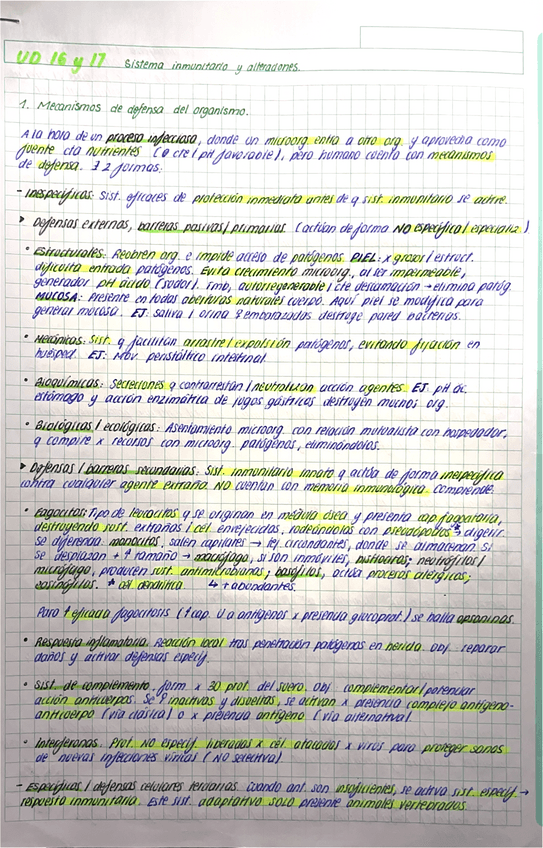 UD 16 y 17 Sistema inmunitario y alteraciones.
1. Mecanismos de defensa del organismo.
A la hora de un proceso infeccioso, donde un microorg. entra a otro org. y aprovecha como
fuente cta nutrientes (Ø cre (pH favorable), pero humano cuenta con mecanismos
de defensa. ∃ 2 formas:
- Inespecíficas: Sist. eficaces de protección inmediata antes de q sist. inmunitario se active.
➤ Defensas externas, barreras pasivas / primarias. (actúan de forma NO específica / especializ.)
• Estructurales: Recubren org. e impide acceso de patógenos. PIEL: x grosor / estruct.
dificulta entrada patógenos. Evita crecimiento microorg. al ser impermeable,
generador pH ácido (sudor). Tmb, autorregenerable / cte descamación → elimina patóg.
MUCOSA: Presente en todas aberturas naturales cuerpo. Aquí piel se modifica para
generar mucosa. EJ: saliva / orina embarazadas destroge pared bacterias.
• Mecánicas: Sist. q facilitan arrastre / expulsión patógenos, evitando fijación en
huésped. EJ: Mov. peristáltico intestinal.
• Bioquímicas: Secreciones q contrarrestan / neutralizan acción agentes. EJ: pH ác.
estómago y acción enzimática de jugos gástricos destroyen muchos org.
• Biológicas / ecológicas: Asentamiento microorg. con relación mutualista con hospedador,
q compite x recursos con microorg. patógenos, eliminándolos.
➤ Defensas / barreras secundarias: Sist. inmunitario innato q actúa de forma inespecífica
contra cualquier agente extraño. NO cuentan con memoria inmunológica. Comprende:
• Fagocitos: Tipo de leucocitos q se originan en médula ósea y presenta cap. fagocitaria,
destruyendo sust. extrañas / cél. envejecidas, rodeándolas con pseudópodos → digerir.
se diferencia: monocitos, salen capilares → tej. circundantes, donde se almacenan. Si
se desplazan + ↑ tamaño → macrófago, si son inmóviles, histiocitos; neutrófilos /
micrófago, producen sust. antimicrobianas; basófilos, actúa procesos alérgicos;
eosinófilos. * cél dendrítica. ↳ + abundantes.
Para ↑ eficacia fagocitosis (↑ cap. U a antígenos x presencia glucoprot.) se halla opsoninas.
• Respuesta inflamatoria. Reacción local tras penetración patógenos en herida. Obj. reparar
daños y activar defensas específ.
• Sist. de complemento. form. x 30 prot. del suero. Obj. complementar / potenciar
acción anticuerpos. Se inactivos y disueltos, se activan x presencia complejo antígeno-
anticuerpo (vía clásica) o x presencia antígeno (vía alternativa).
• Interferonas. Prot. NO específ. liberadas x cél. atacadas x virus para proteger sanas
de nuevas infecciones víricas (NO selectiva).
- Específicas / defensas celulares terciarias. Cuando ant. son insuficientes, se activa sist. específ →
respuesta inmunitaria. Este sist. adaptativo SOLO presente animales vertebrados.